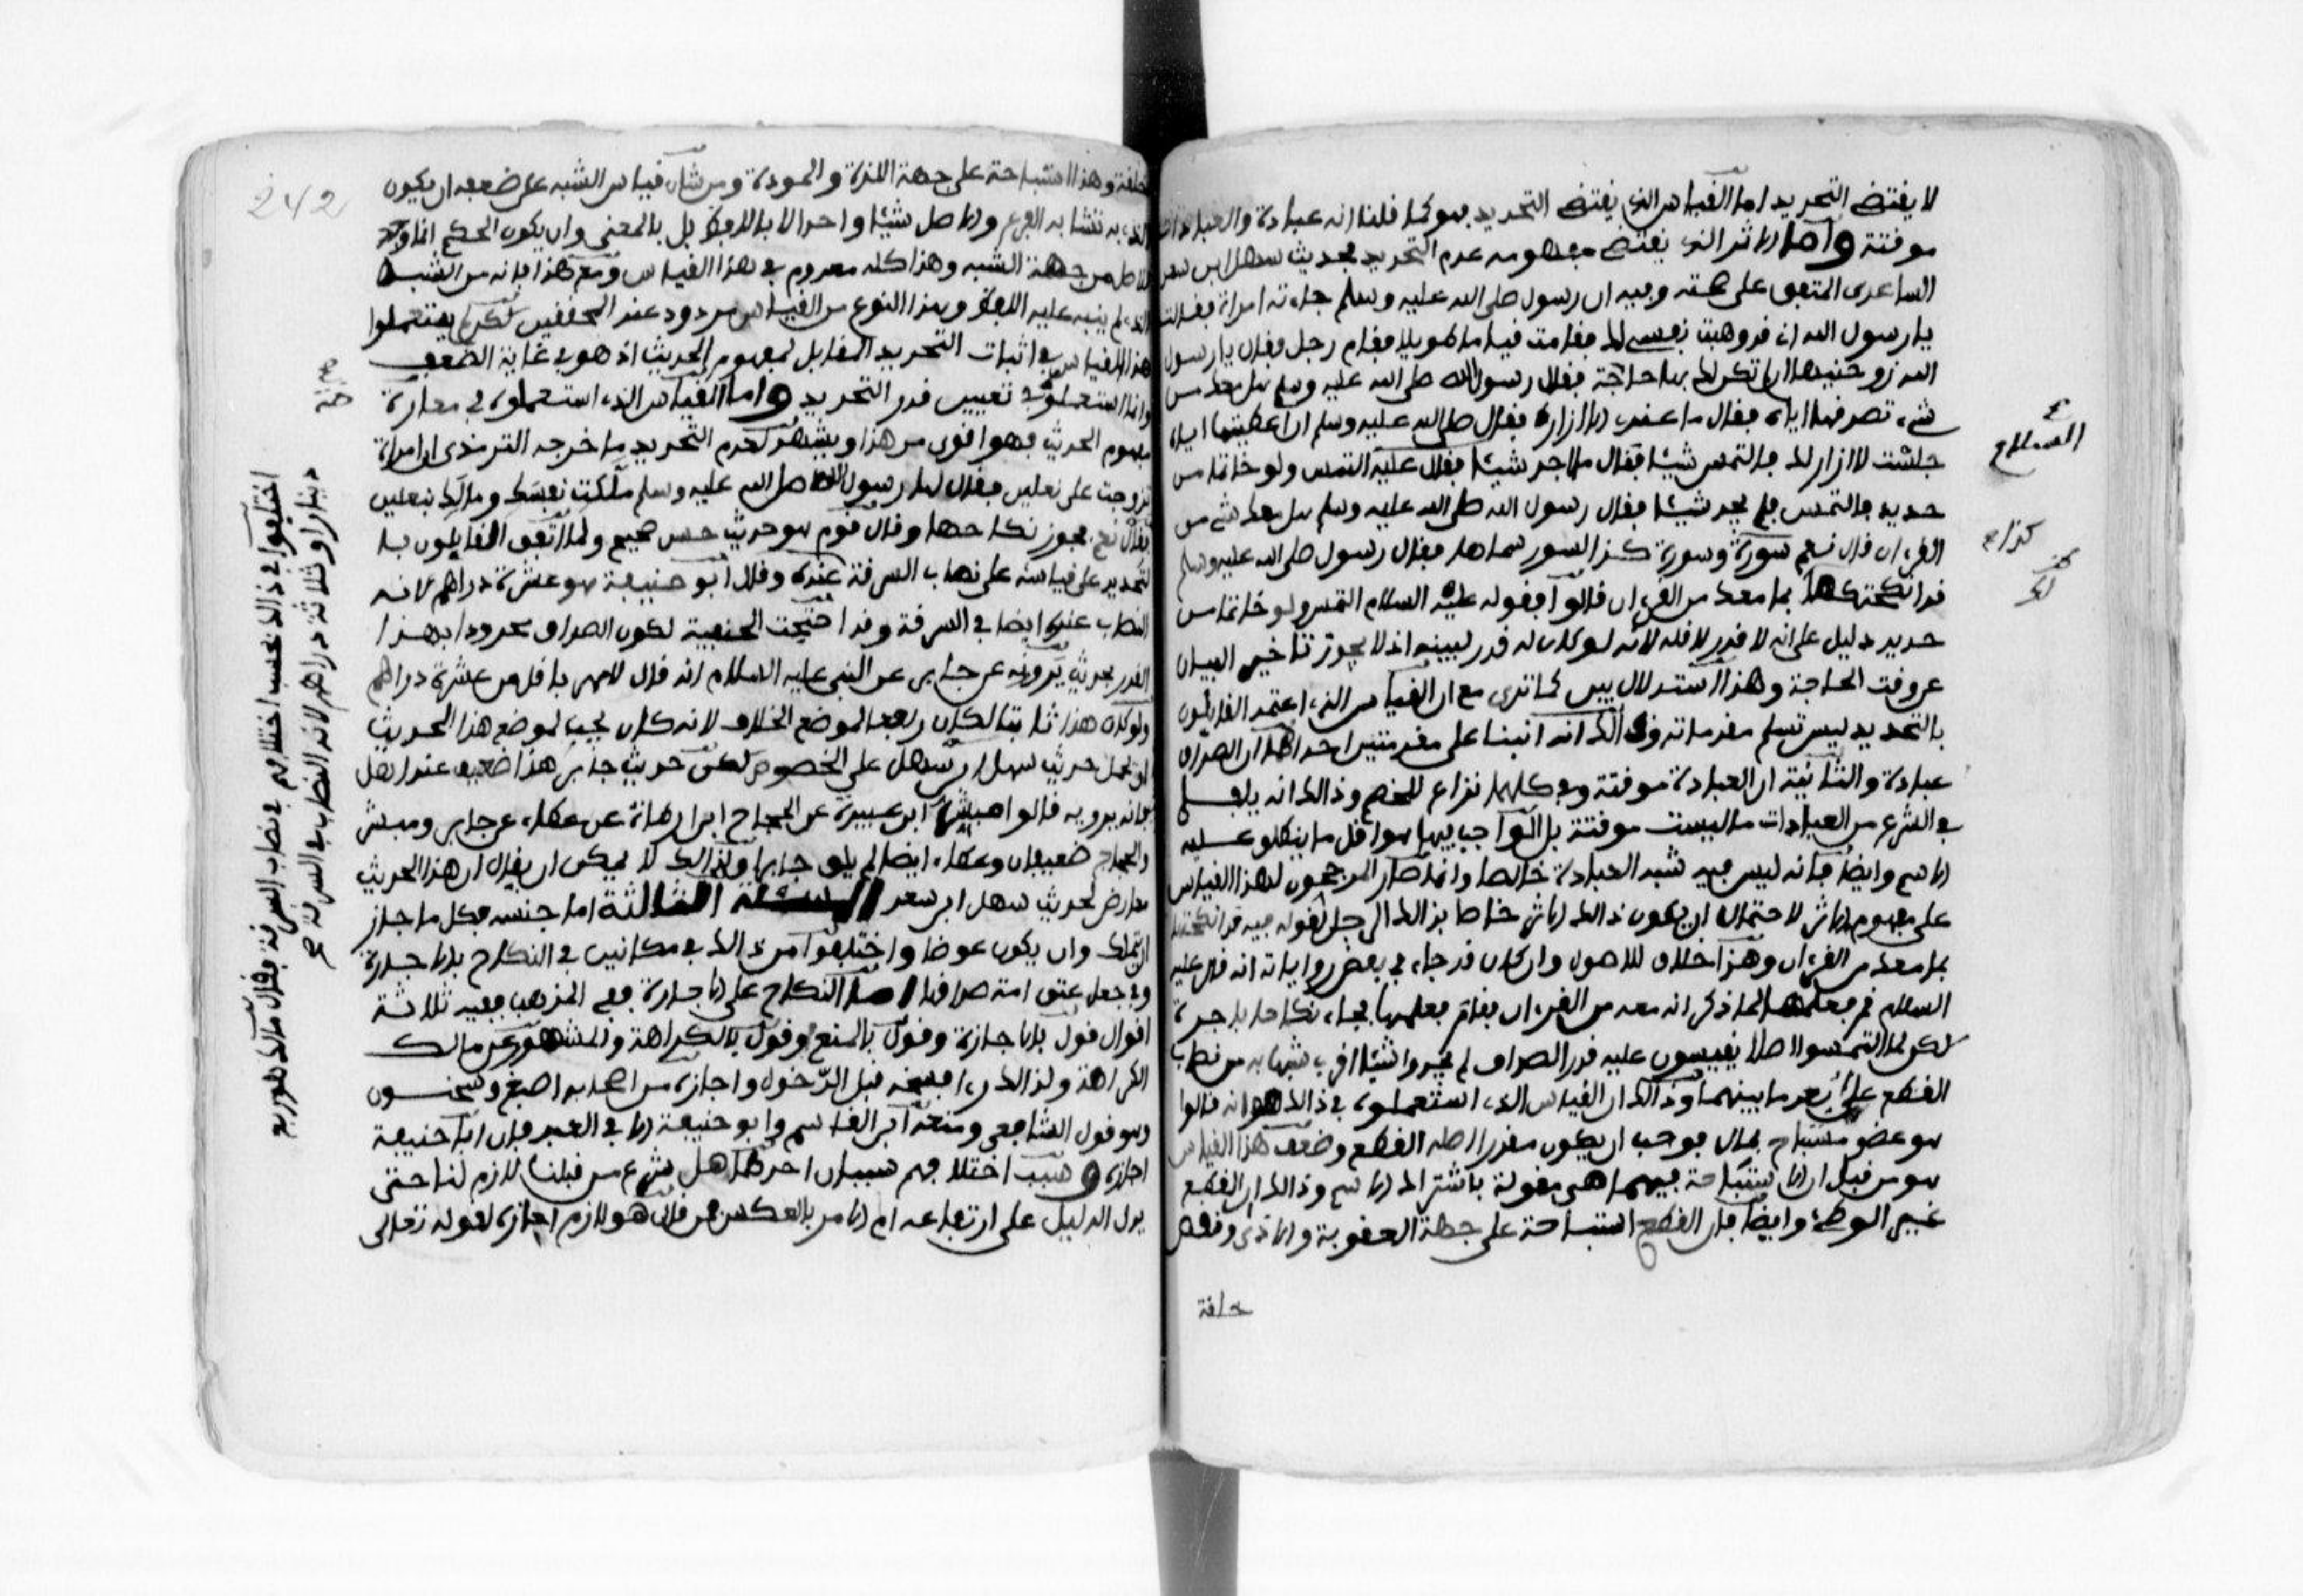 لا يقتضي التحديد اما القياس الذي يقتضي التحديد فهو كما قلنا انه عبادة والعبادات
موقتة واما الاثر الذي يقتضي مفهومه عدم التحديد فحديث سهل ابن سعد
الساعدي المتفق على صحته وفيه ان رسول صلى الله عليه وسلم جاءته امراة فقالت
يا رسول الله اني قد وهبت نفسي لك فقامت قياما طويلا فقام رجل فقال يا رسول
الله زوجنيها ان لم تكن لك بها حاجة فقال رسول الله صلى الله عليه وسلم هل معك من
شيء تصدقها اياه فقال ما عندي الا ازاري فقال صلى الله عليه وسلم ان اعطيتها اياه
جلست لا ازار لك فالتمس شيئا فقال ما اجد شيئا فقال عليه التمس ولو خاتما من
حديد فالتمس فلم يجد شيئا فقال رسول الله صلى الله عليه وسلم هل معك شيء من
القرءان قال نعم سورة وسورة كذا لسور سماها فقال رسول صلى الله عليه وسلم
قد انكحتكها بما معك من القرءان قالوا فقوله عليه السلام التمس ولو خاتما من
حديد دليل على انه لا قدر لاقله لانه لو كان له قدر لبينه اذ لا يجوز تاخير البيان
عن وقت الحاجة وهذا استدلال بين كما ترى مع ان القياس الذي اعتمد القائلون
بالتحديد ليس تسلم مقدماته وذلك انه انبنا على مقدمتين احداهما ان الصداق
عبادة والثانية ان العبادة موقتة وفي كليهما نزاع للخصم وذلك انه يلفى
في الشرع من العبادات ما ليست موقتة بل الواجب فيها هو اقل ما ينطلق عليه
الاسم وايضا فانه ليس فيه شبه العبادة خالصا وانما صار المرجحون لهذا القياس
على مفهوم الاثر لاحتمال ان يكون ذلك الاثر خاصا بذلك الرجل لقوله فيه قد انكحتكها
بما معك من القرءان وهذا خلاف للاصول وان كان قد جاء في بعض رواياته انه قال عليه
السلام قم فعلمها لما ذكر انه معه من القرءان فقام فعلمها فجاء نكاحا باجرة
لكن لما التمسوا اصلا يقيسون عليه قدر الصداق لم يجدوا شيئا اقرب شبها به من نصاب
القطع على بعد ما بينهما وذلك ان القياس الذي استعملوه في ذلك هو انه قالوا
هو عضو مستباح بمال فوجب ان يكون مقدرا اصله القطع وضعف هذا القياس
هو من قبل ان الاستباحة فيهما هي مقولة باشتراك الاسم وذلك ان القطع
غير الوطء وايضا فان القطع استباحة على جهة العقوبة والاذى ونقص
خلقة
السلام
كذا
خلقة وهذا استباحة على جهة اللذة والمودة ومن شان قياس الشبه على ضعفه ان يكون
الذي به تشابه الفرع والاصل شيئا واحدا لا باللفظ بل بالمعنى وان يكون الحكم انما وجد
للاصل من جهة الشبه وهذا كله معدوم في هذا القياس ومع هذا فانه من الشبه
الذي لم ينبه عليه اللفظ وهذا النوع من القياس مردود عند المحققين لكن لم يستعملوا
هذا القياس في اثبات التحديد المقابل لمفهوم الحديث اذ هو في غاية الضعف
وانما استعملوه في تعيين قدر التحديد واما القياس الذي استعملوه في معارضة
مفهوم الحديث فهو اقوى من هذا ويشهد لعدم التحديد ما خرجه الترمذي ان امراة
تزوجت على نعلين فقال لها رسول الله صلى الله عليه وسلم من نفسك ومالك بنعلين
فقالت نعم فجوز نكاحها وقال قوم هو حديث حسن صحيح ولما اتفق القائلون با
لتحديد على قياسه على نصاب السرقة عنده وقال ابو حنيفة هو عشرة دراهم لانه
النصاب عنده ايضا في السرقة وقد احتجت الحنفية لكون الصداق محدودا بهذا
القدر بحديث يروونه عن جابر عن النبي عليه السلام انه قال لا مهر باقل من عشرة دراهم
ولو كان هذا ثابتا لكان رفعا لموضع الخلاف لانه كان يجب لموضع هذا الحديث
ان يحمل حديث سهل ابن سهل على الخصوص لكن حديث جابر هذا ضعيف عند اهل
فانه يرويه قالوا مبشر ابن عبيد عن الحجاج ابن ارطاة عن عطاء عن جابر ومبشر
والحجاج ضعيفان وعطاء ايضا لم يلق جابرا ولذلك لا يمكن ان يقال ان هذا الحديث
معارض لحديث سهل ابن سعد المسئلة الثالثة اما جنسه فكل ما جاز
ان يتملك وان يكون عوضا واختلفوا من ذلك في مكانين في النكاح بالاجارة
وفي جعل عتق امته صداقها اما النكاح على الاجارة ففي المذهب فيه ثلاثة
اقوال قول بالاجازة وقول بالمنع وقول بالكراهة والمشهور عن مالك
الكراهة ولذلك راى فسخه قبل الدخول واجازه من اصحابه اصبغ وسحنون
وهو قول الشافعي ومنعه ابن القاسم وابو حنيفة الا في العبد فان ابا حنيفة
اجازه وسبب اختلافهم سببان احدهما هل شرع من قبلنا لازم لنا حتى
يدل الدليل على ارتفاعه ام الامر بالعكس فمن قال هو لازم اجازه لقوله تعالى
242
اختلفوا في ذلك بحسب اختلافهم في نصاب السرقة فقال مالك هو ربع
دينار او ثلاثة دراهم لانه النصاب في السرقة